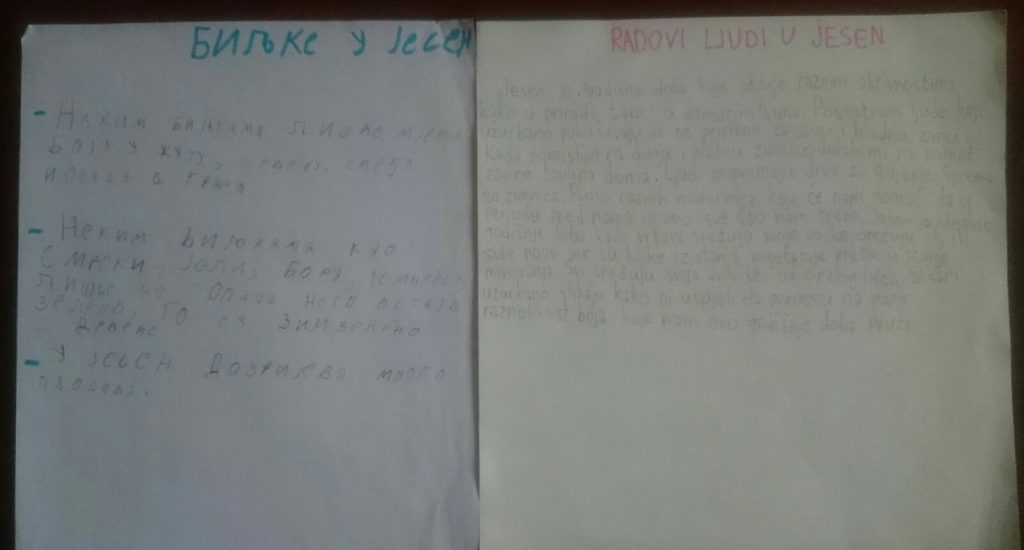 БиљКЕ У ЈЕСЕН
- Неким биљкама лишће мјења
боју у жуту, црвену, смеђу
и опада с грана
- Неким биљкама као
Смреки, јели, бору,
лишће не опада него остаје
зелено то су зимзелено
дрвеће
- У јесен дозријева много
плодова.
RADOVI LJUDI U JESEN
Jesen je Godišnje doba koje obiluje raznim aktivnostima
kako u prirodi, tako i u domaćinstvima. Posmatram ljude koji
uzurbano pokušavaju da se pripreme za dugu i hladnu zimu.
Kada pomislim na dugu i hladnu zimu, odmah mi na pamet
padne toplina doma. Ljudi pripremaju drva za grijanje. Sprema
se zimnica. Puno raznih namirnica koje će nam pomoći da u
periodu pred nama imamo sve što nam treba. Jesen je idealno
godišnje doba kada vrtlari sređuju svoje voćke orezuju ih ili
sade nove jer su biljke iz stanja vegetacije prešle u stanje
mirovanja. Svi sređuju svoja dvorišta od opalog lišća. Slikari
uzurbano slikaju kako bi uspjeli da prenesu na papir
raznolikost boja koje nam ovo godišnje doba pruža.